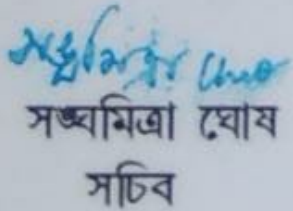 সঙ্ঘমিত্রা ঘোষ
সঙ্ঘমিত্রা ঘোষ
সচিব